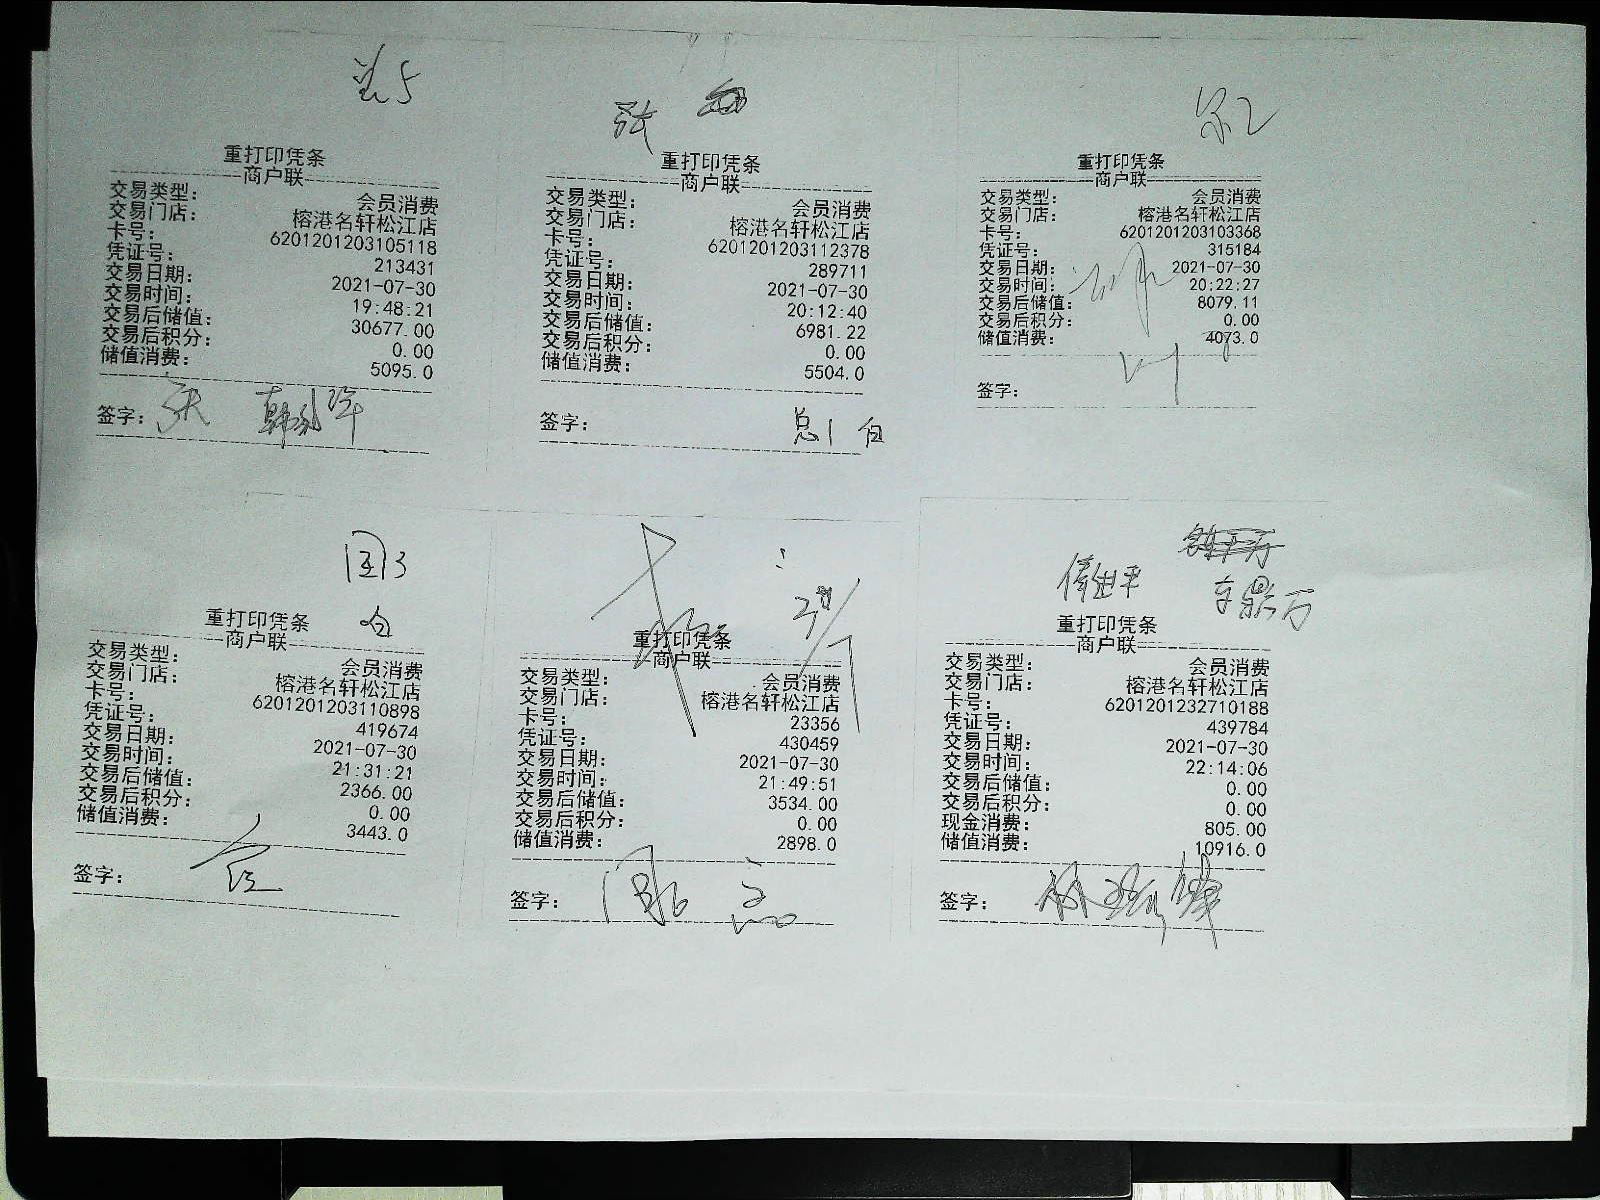 张
重打印凭条
商户联
交易类型： 会员消费
交易门店： 榕港名轩松江店
卡号： 6201201203105118
凭证号： 213431
交易日期： 2021-07-30
交易时间： 19:48:21
交易后储值： 30677.00
交易后积分： 0.00
储值消费： 5095.0
签字：
重打印凭条
商户联
交易类型： 会员消费
交易门店： 榕港名轩松江店
卡号： 6201201203112378
凭证号： 289711
交易日期： 2021-07-30
交易时间： 20:12:40
交易后储值： 6981.22
交易后积分： 0.00
储值消费： 5504.0
签字：
重打印凭条
商户联
交易类型： 会员消费
交易门店： 榕港名轩松江店
卡号： 6201201203103368
凭证号： 315184
交易日期： 2021-07-30
交易时间： 20:22:27
交易后储值： 8079.11
交易后积分： 0.00
储值消费： 4073.0
签字：
国3
重打印凭条
商户联
交易类型： 会员消费
交易门店： 榕港名轩松江店
卡号： 6201201203110898
凭证号： 419674
交易日期： 2021-07-30
交易时间： 21:31:21
交易后储值： 2366.00
交易后积分： 0.00
储值消费： 3443.0
签字：
重打印凭条
商户联
交易类型： 会员消费
交易门店： 榕港名轩松江店
卡号： 23356
凭证号： 430459
交易日期： 2021-07-30
交易时间： 21:49:51
交易后储值： 3534.00
交易后积分： 0.00
储值消费： 2898.0
签字：
重打印凭条
商户联
交易类型： 会员消费
交易门店： 榕港名轩松江店
卡号： 6201201232710188
凭证号： 439784
交易日期： 2021-07-30
交易时间： 22:14:06
交易后储值： 0.00
交易后积分： 0.00
现金消费： 805.00
储值消费： 10916.0
签字：